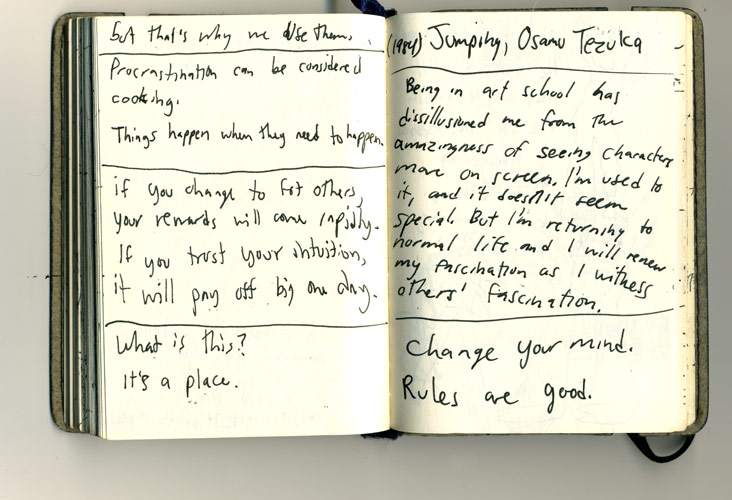 but that's why we use them.
Procrastination can be considered
cooking.
Things happen when they need to happen.
if you change to fit others,
your rewards will come rapidly.
If you trust your intuition,
it will pay off big one day.
What is this?
It's a place.
(1984) Jumping, Osamu Tezuka
Being in art school has
dissillusioned me from the
amazingness of seeing characters
move on screen. I'm used to
it, and it doesn't seem
special. But I'm returning to
normal life and I will renew
my fascination as I witness
others' fascination.
Change your mind.
Rules are good.